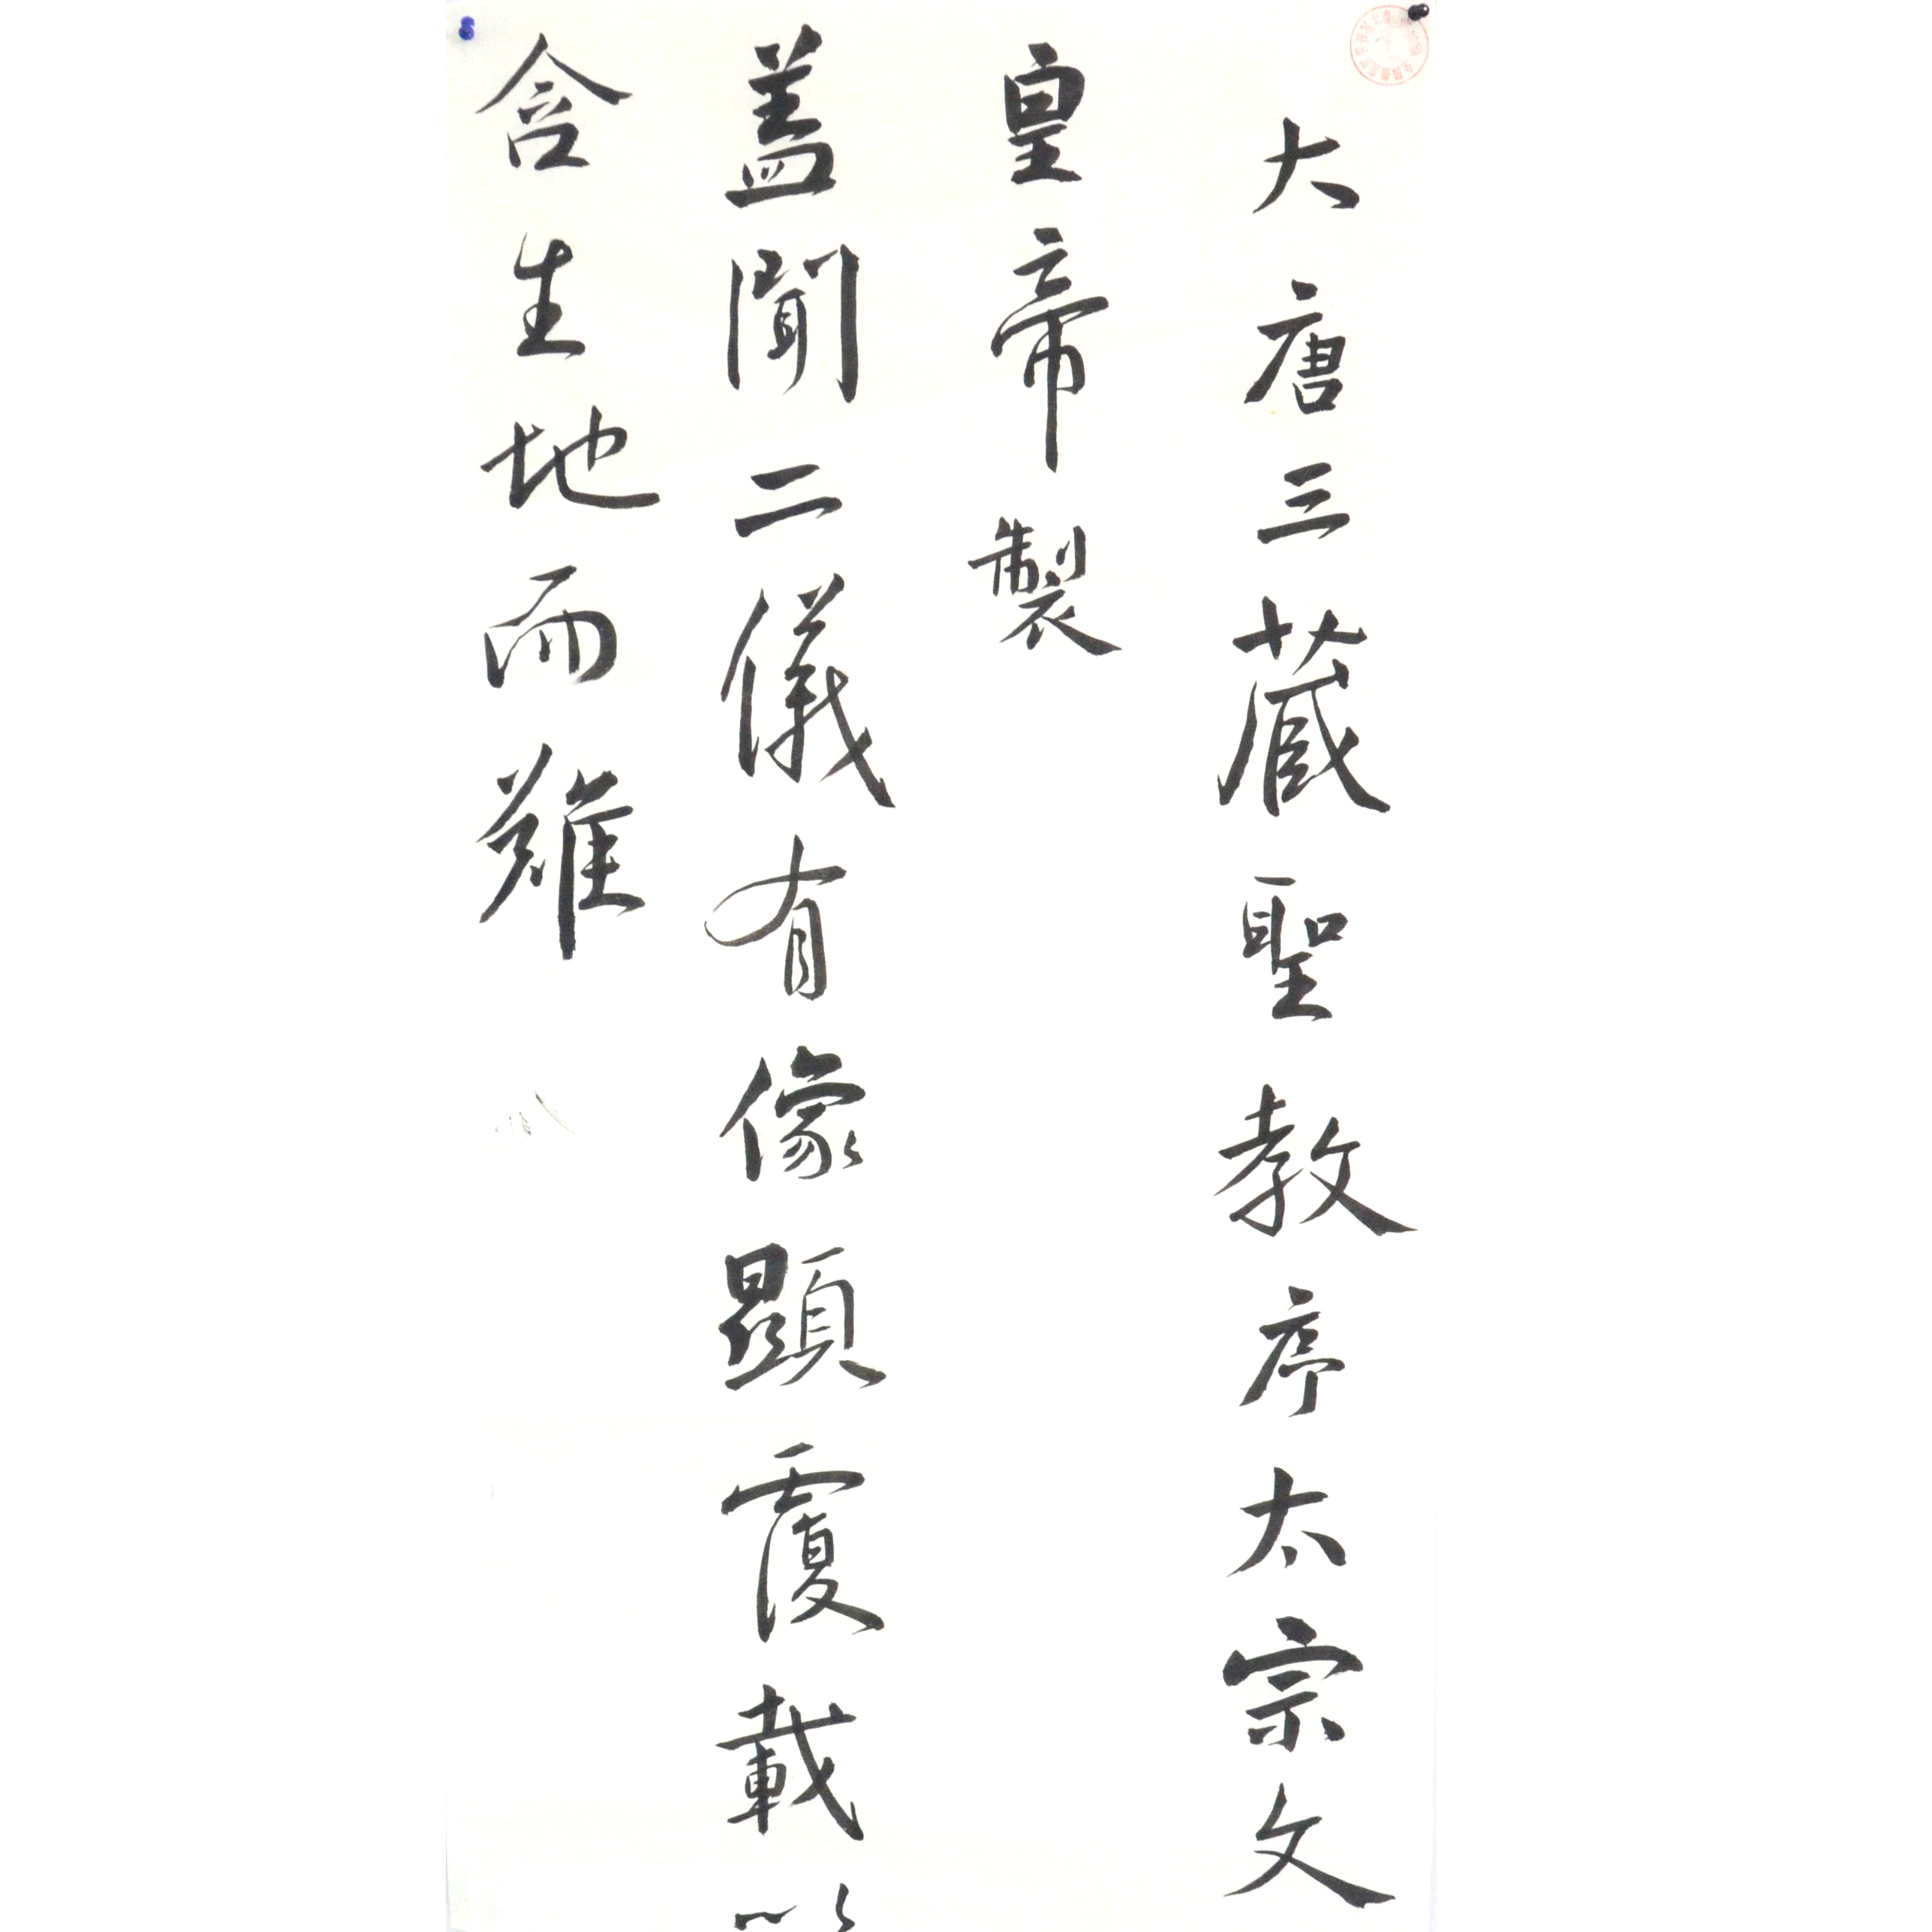 大唐三藏聖教序太宗文
皇帝製
蓋聞二儀有像顯覆載以
含生地而難